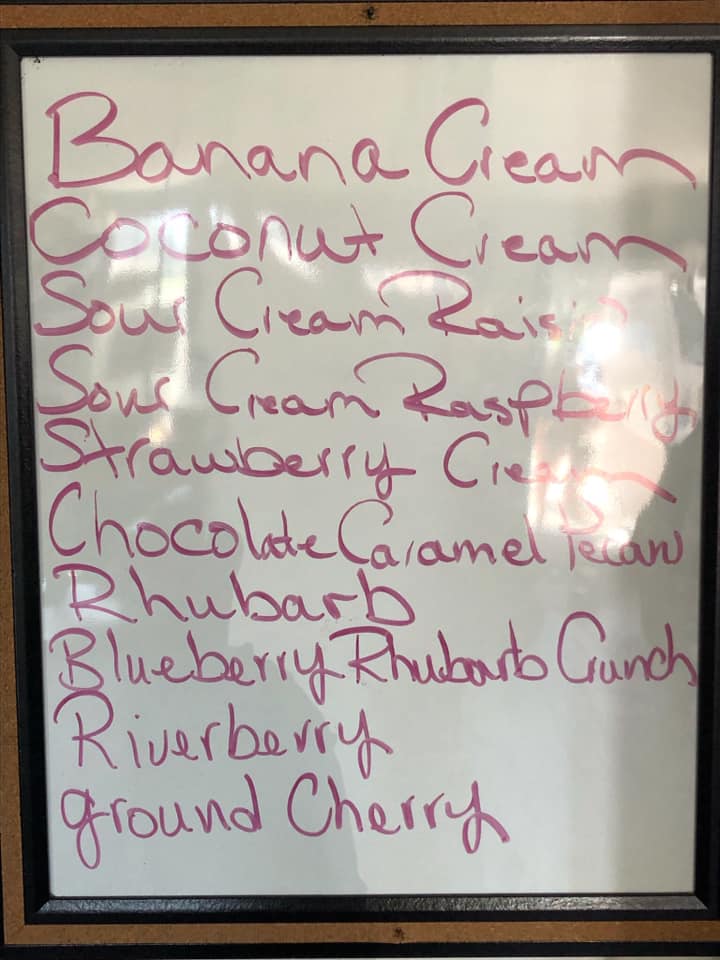 Banana Cream
Coconut Cream
Sour Cream Raisin
Sour Cream Raspberry
Strawberry Cream
Chocolate Caramel Pecan
Rhubarb
Blueberry Rhubarb Crunch
Riverberry
ground Cherry